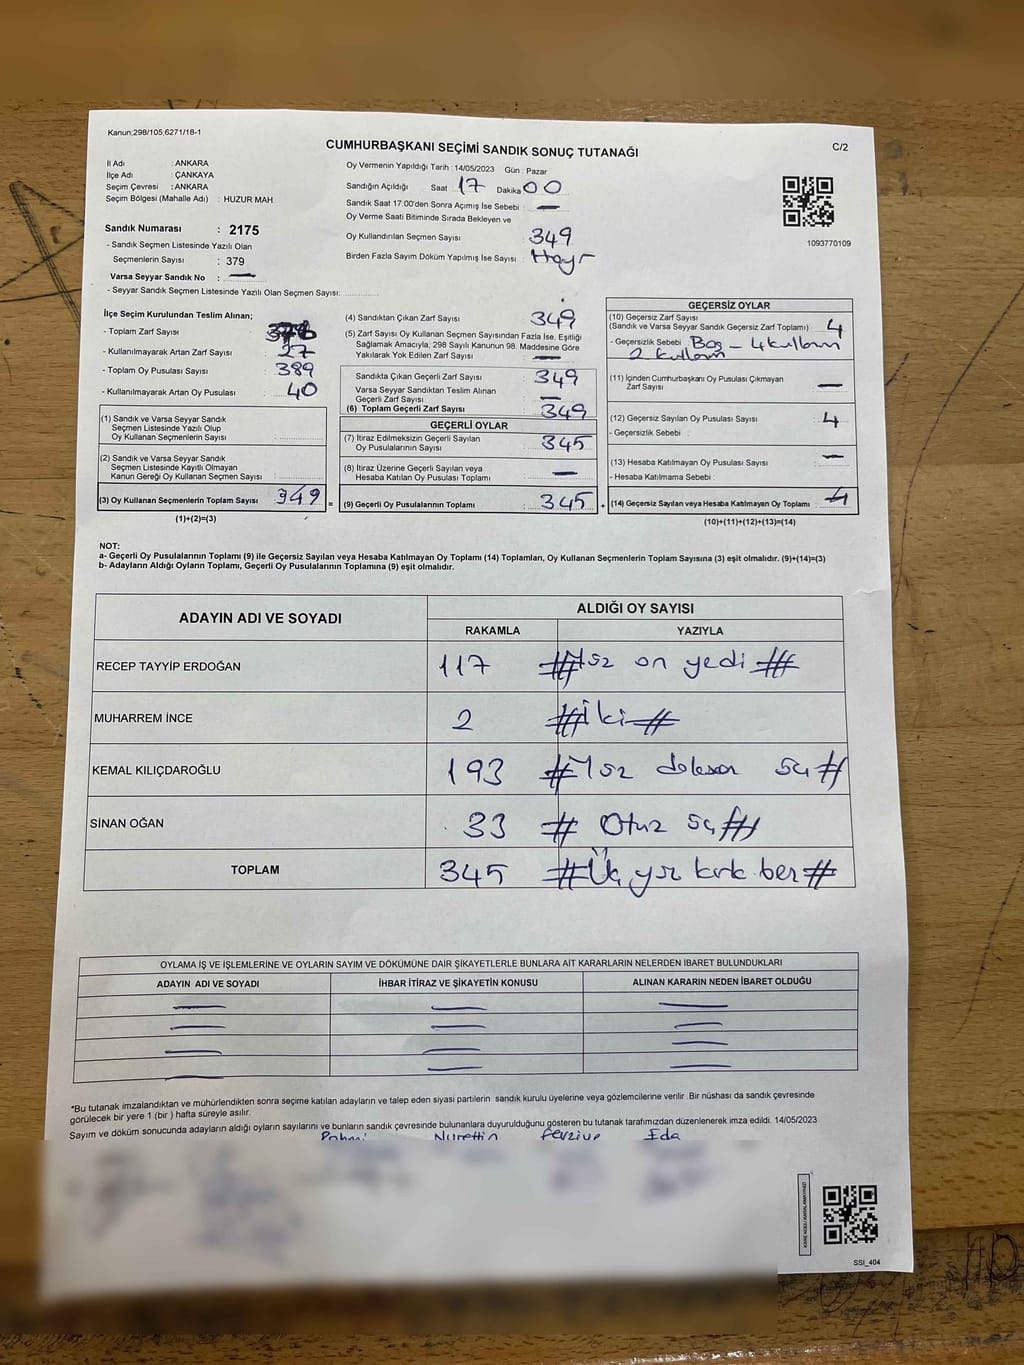 Kanun;298/105;6271/18-1
CUMHURBAŞKANI SEÇİMİ SANDIK SONUÇ TUTANAĞI
C/2
İl Adı : ANKARA
İlçe Adı : ÇANKAYA
Seçim Çevresi : ANKARA
Seçim Bölgesi (Mahalle Adı) : HUZUR MAH.
Sandık Numarası : 2175
- Sandık Seçmen Listesinde Yazılı Olan
Seçmenlerin Sayısı : 379
Varsa Seyyar Sandık No : —
- Seyyar Sandık Seçmen Listesinde Yazılı Olan Seçmen Sayısı: ..............
Oy Vermenin Yapıldığı Tarih : 14/05/2023 Gün : Pazar
Sandığın Açıldığı Saat 17 Dakika 00
Sandık Saat 17:00'den Sonra Açımış İse Sebebi : —
Oy Verme Saati Bitiminde Sırada Bekleyen ve
Oy Kullandırılan Seçmen Sayısı : 349
Birden Fazla Sayım Döküm Yapılmış İse Sayısı : Hayr
1093770109
İlçe Seçim Kurulundan Teslim Alınan;
- Toplam Zarf Sayısı
- Kullanılmayarak Artan Zarf Sayısı : 27
- Toplam Oy Pusulası Sayısı : 389
- Kullanılmayarak Artan Oy Pusulası : 40
(1) Sandık ve Varsa Seyyar Sandık
Seçmen Listesinde Yazılı Olup
Oy Kullanan Seçmenlerin Sayısı : ..............
(2) Sandık ve Varsa Seyyar Sandık
Seçmen Listesinde Kayıtlı Olmayan
Kanun Gereği Oy Kullanan Seçmen Sayısı : ..............
(3) Oy Kullanan Seçmenlerin Toplam Sayısı : 349
(1)+(2)=(3)
=
(4) Sandıktan Çıkan Zarf Sayısı : 349
(5) Zarf Sayısı Oy Kullanan Seçmen Sayısından Fazla İse, Eşitliği
Sağlamak Amacıyla; 298 Sayılı Kanunun 98. Maddesine Göre
Yakılarak Yok Edilen Zarf Sayısı : —
Sandıkta Çıkan Geçerli Zarf Sayısı : 349
Varsa Seyyar Sandıktan Teslim Alınan
Geçerli Zarf Sayısı : —
(6) Toplam Geçerli Zarf Sayısı : 349
GEÇERLİ OYLAR
(7) İtiraz Edilmeksizin Geçerli Sayılan
Oy Pusulalarının Sayısı : 345
(8) İtiraz Üzerine Geçerli Sayılan veya
Hesaba Katılan Oy Pusulası Toplamı : —
(9) Geçerli Oy Pusulalarının Toplamı : 345
+
GEÇERSİZ OYLAR
(10) Geçersiz Zarf Sayısı
(Sandık ve Varsa Seyyar Sandık Geçersiz Zarf Toplamı) : 4
- Geçersizlik Sebebi : Boş – 4 kullanım
2 kullanım
(11) İçinden Cumhurbaşkanı Oy Pusulası Çıkmayan
Zarf Sayısı : —
(12) Geçersiz Sayılan Oy Pusulası Sayısı : 4
- Geçersizlik Sebebi :
(13) Hesaba Katılmayan Oy Pusulası Sayısı : —
- Hesaba Katılmama Sebebi :
(14) Geçersiz Sayılan veya Hesaba Katılmayan Oy Toplamı : 4
(10)+(11)+(12)+(13)=(14)
NOT:
a- Geçerli Oy Pusulalarının Toplamı (9) ile Geçersiz Sayılan veya Hesaba Katılmayan Oy Toplamı (14) Toplamları, Oy Kullanan Seçmenlerin Toplam Sayısına (3) eşit olmalıdır. (9)+(14)=(3)
b- Adayların Aldığı Oyların Toplamı, Geçerli Oy Pusulalarının Toplamına (9) eşit olmalıdır.
ADAYIN ADI VE SOYADI
ALDIĞI OY SAYISI
RAKAMLA YAZIYLA
RECEP TAYYİP ERDOĞAN 117 # Yüz on yedi #
MUHARREM İNCE 2 # İki #
KEMAL KILIÇDAROĞLU 193 # Yüz doksan üç #
SİNAN OĞAN 33 # Otuz üç #
TOPLAM 345 # Üç yüz kırk beş #
OYLAMA İŞ VE İŞLEMLERİNE VE OYLARIN SAYIM VE DÖKÜMÜNE DAİR ŞİKAYETLERLE BUNLARA AİT KARARLARIN NELERDEN İBARET BULUNDUKLARI
ADAYIN ADI VE SOYADI İHBAR İTİRAZ VE ŞİKAYETİN KONUSU ALINAN KARARIN NEDEN İBARET OLDUĞU
*Bu tutanak imzalandıktan ve mühürlendikten sonra seçime katılan adayların ve talep eden siyasi partilerin sandık kurulu üyelerine veya gözlemcilerine verilir .Bir nüshası da sandık çevresinde
görülecek bir yere 1 (bir ) hafta süreyle asılır.
Sayım ve döküm sonucunda adayların aldığı oyların sayılarını ve bunların sandık çevresinde bulunanlara duyurulduğunu gösteren bu tutanak tarafımızdan düzenlenerek imza edildi. 14/05/2023
Nurettin Feyziye Eda
SSI_404